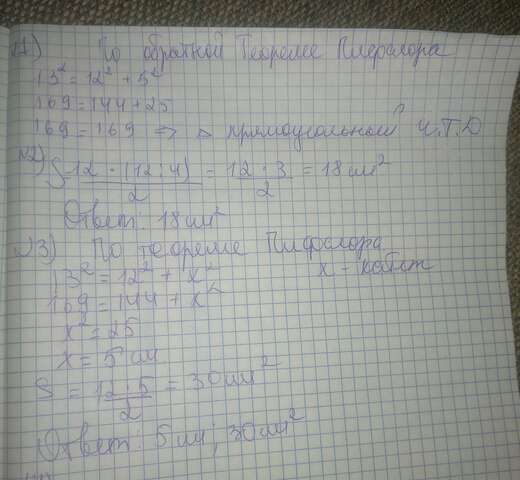 №1) По обратной Теореме Пифагора
13² = 12² + 5²
169 = 144 + 25
169 = 169 => △ прямоугольный Ч.Т.Д
№2) S = 12 · (12 : 4) / 2 = 12 · 3 / 2 = 18 см²
Ответ: 18 см²
№3) По теореме Пифагора
13² = 12² + x² x - катет
169 = 144 + x²
x² = 25
x = 5 см
S = 12 · 5 / 2 = 30 см²
Ответ: 5 см; 30 см²